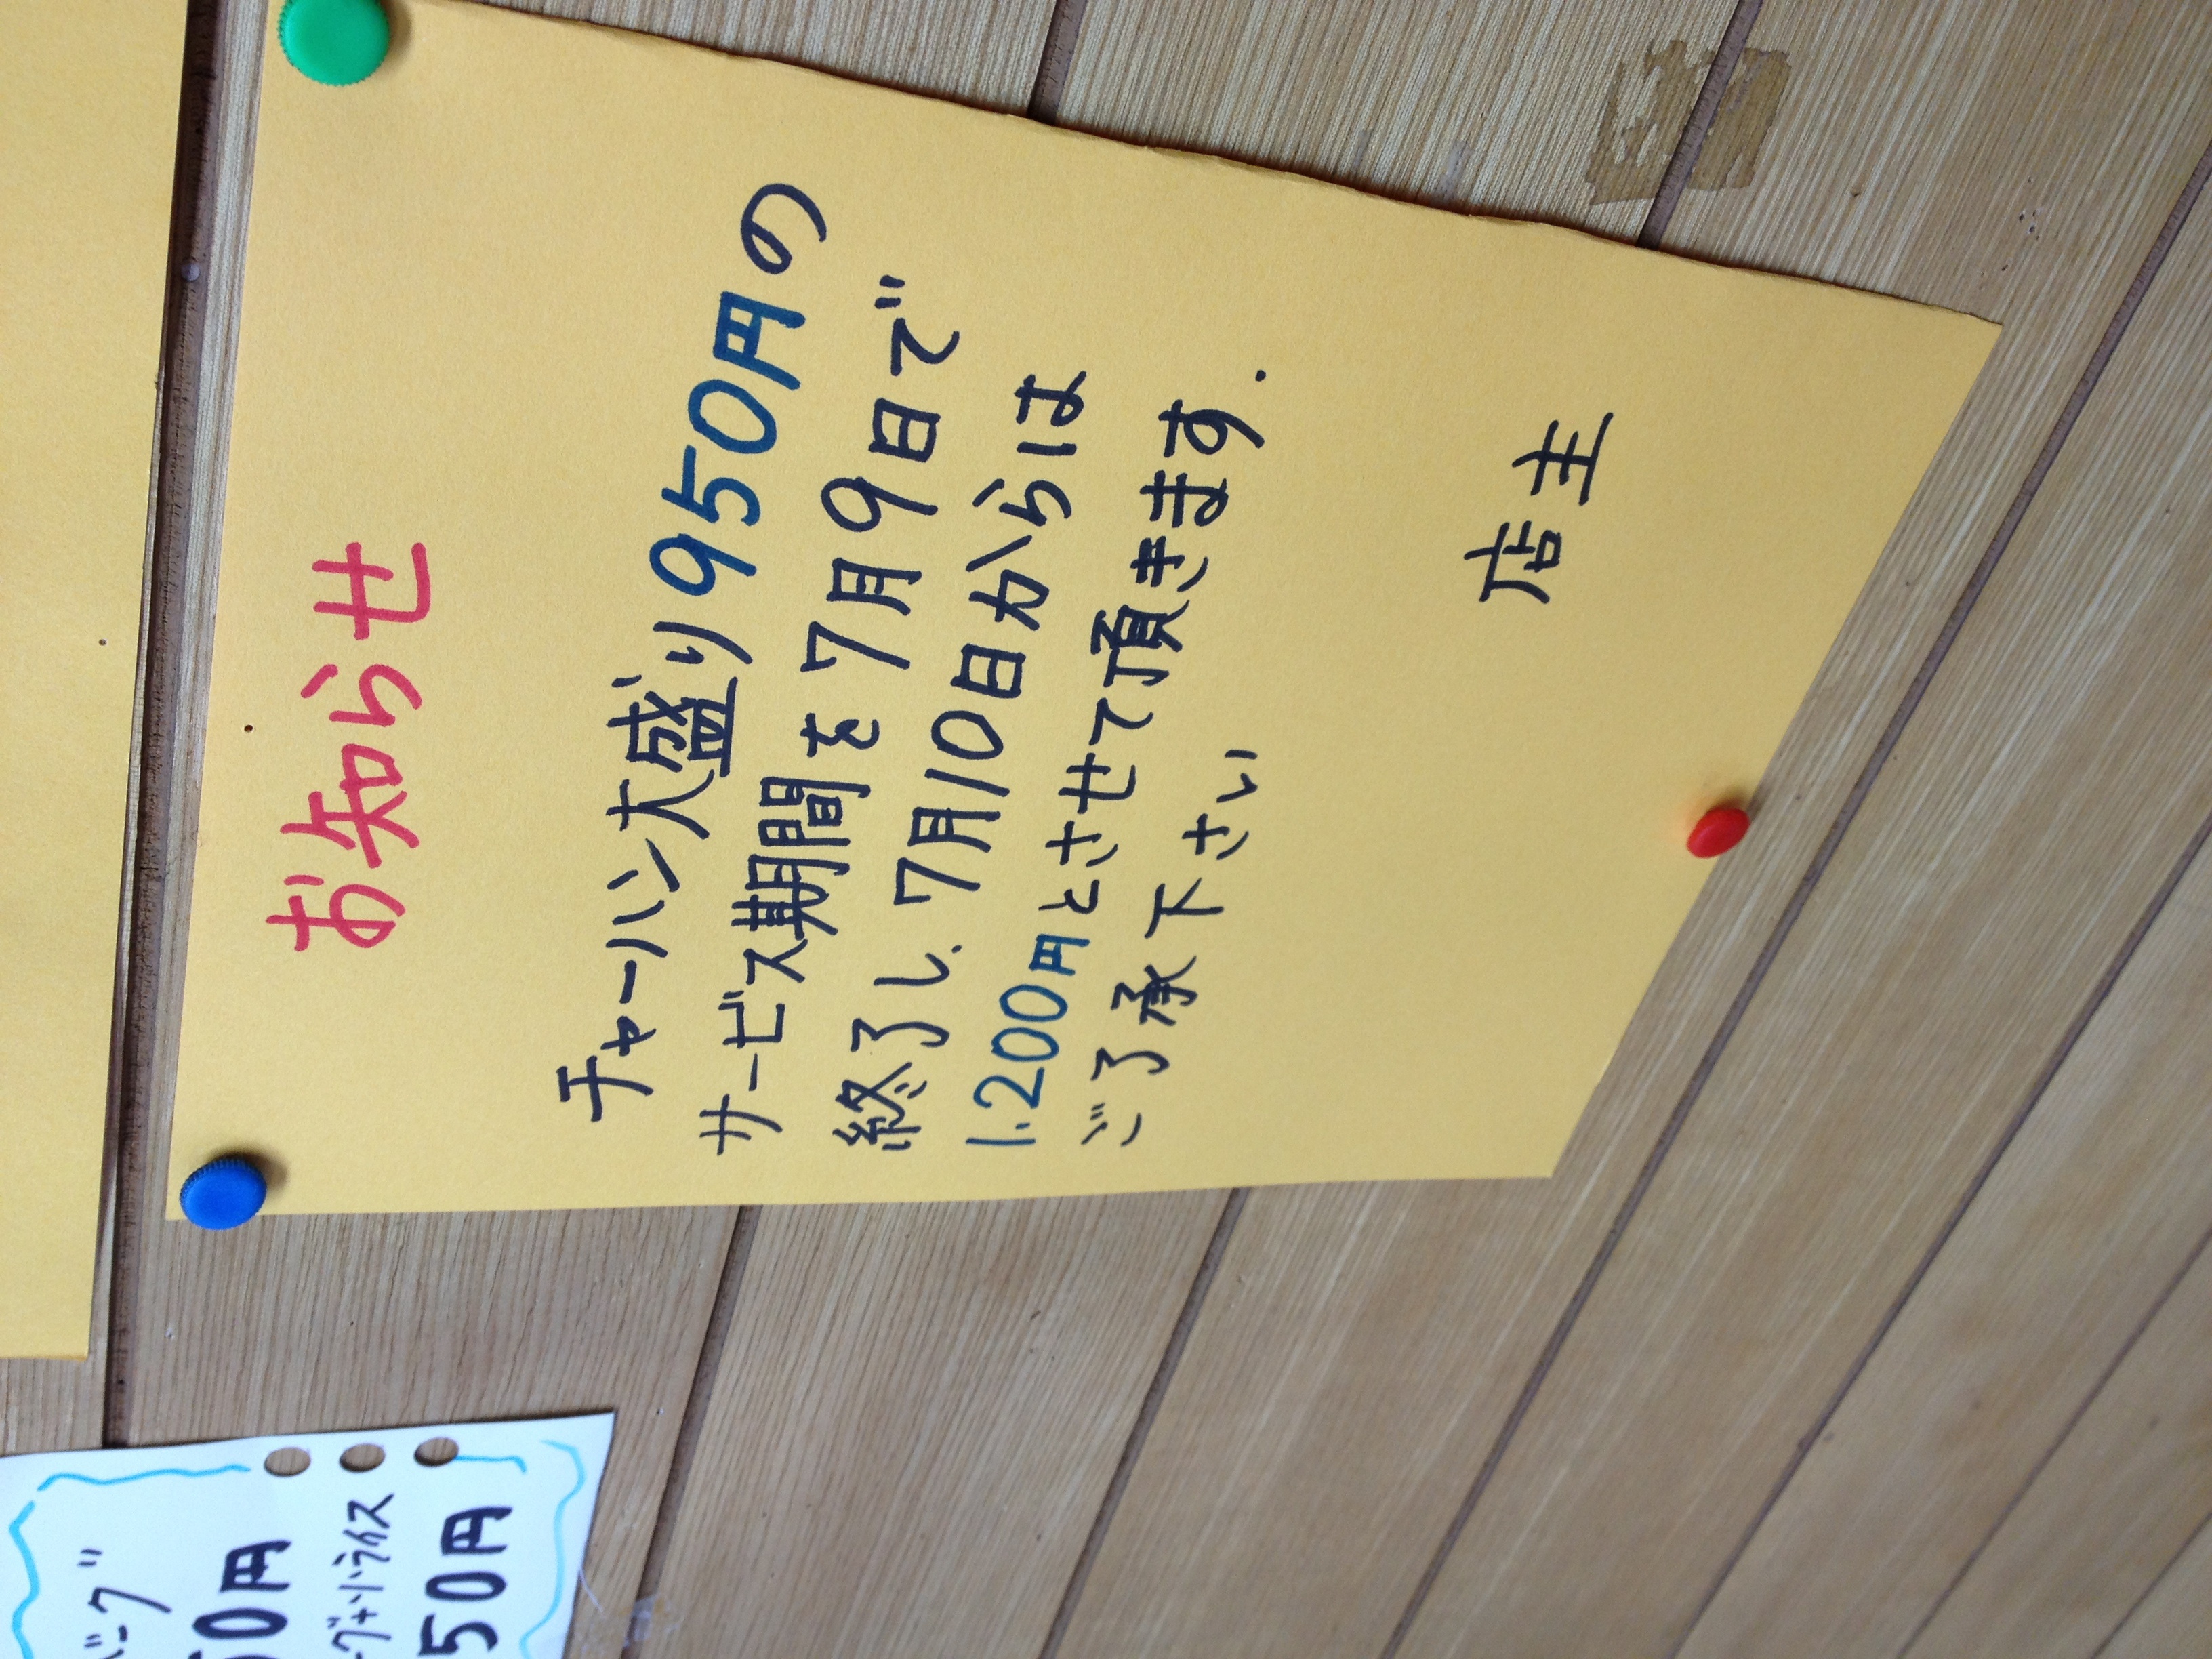 お知らせ
チャーハン大盛り950円の
サービス期間を7月9日で
終了し、7月10日からは
1.200円とさせて頂きます.
ご了承下さい
店主
50円
50円